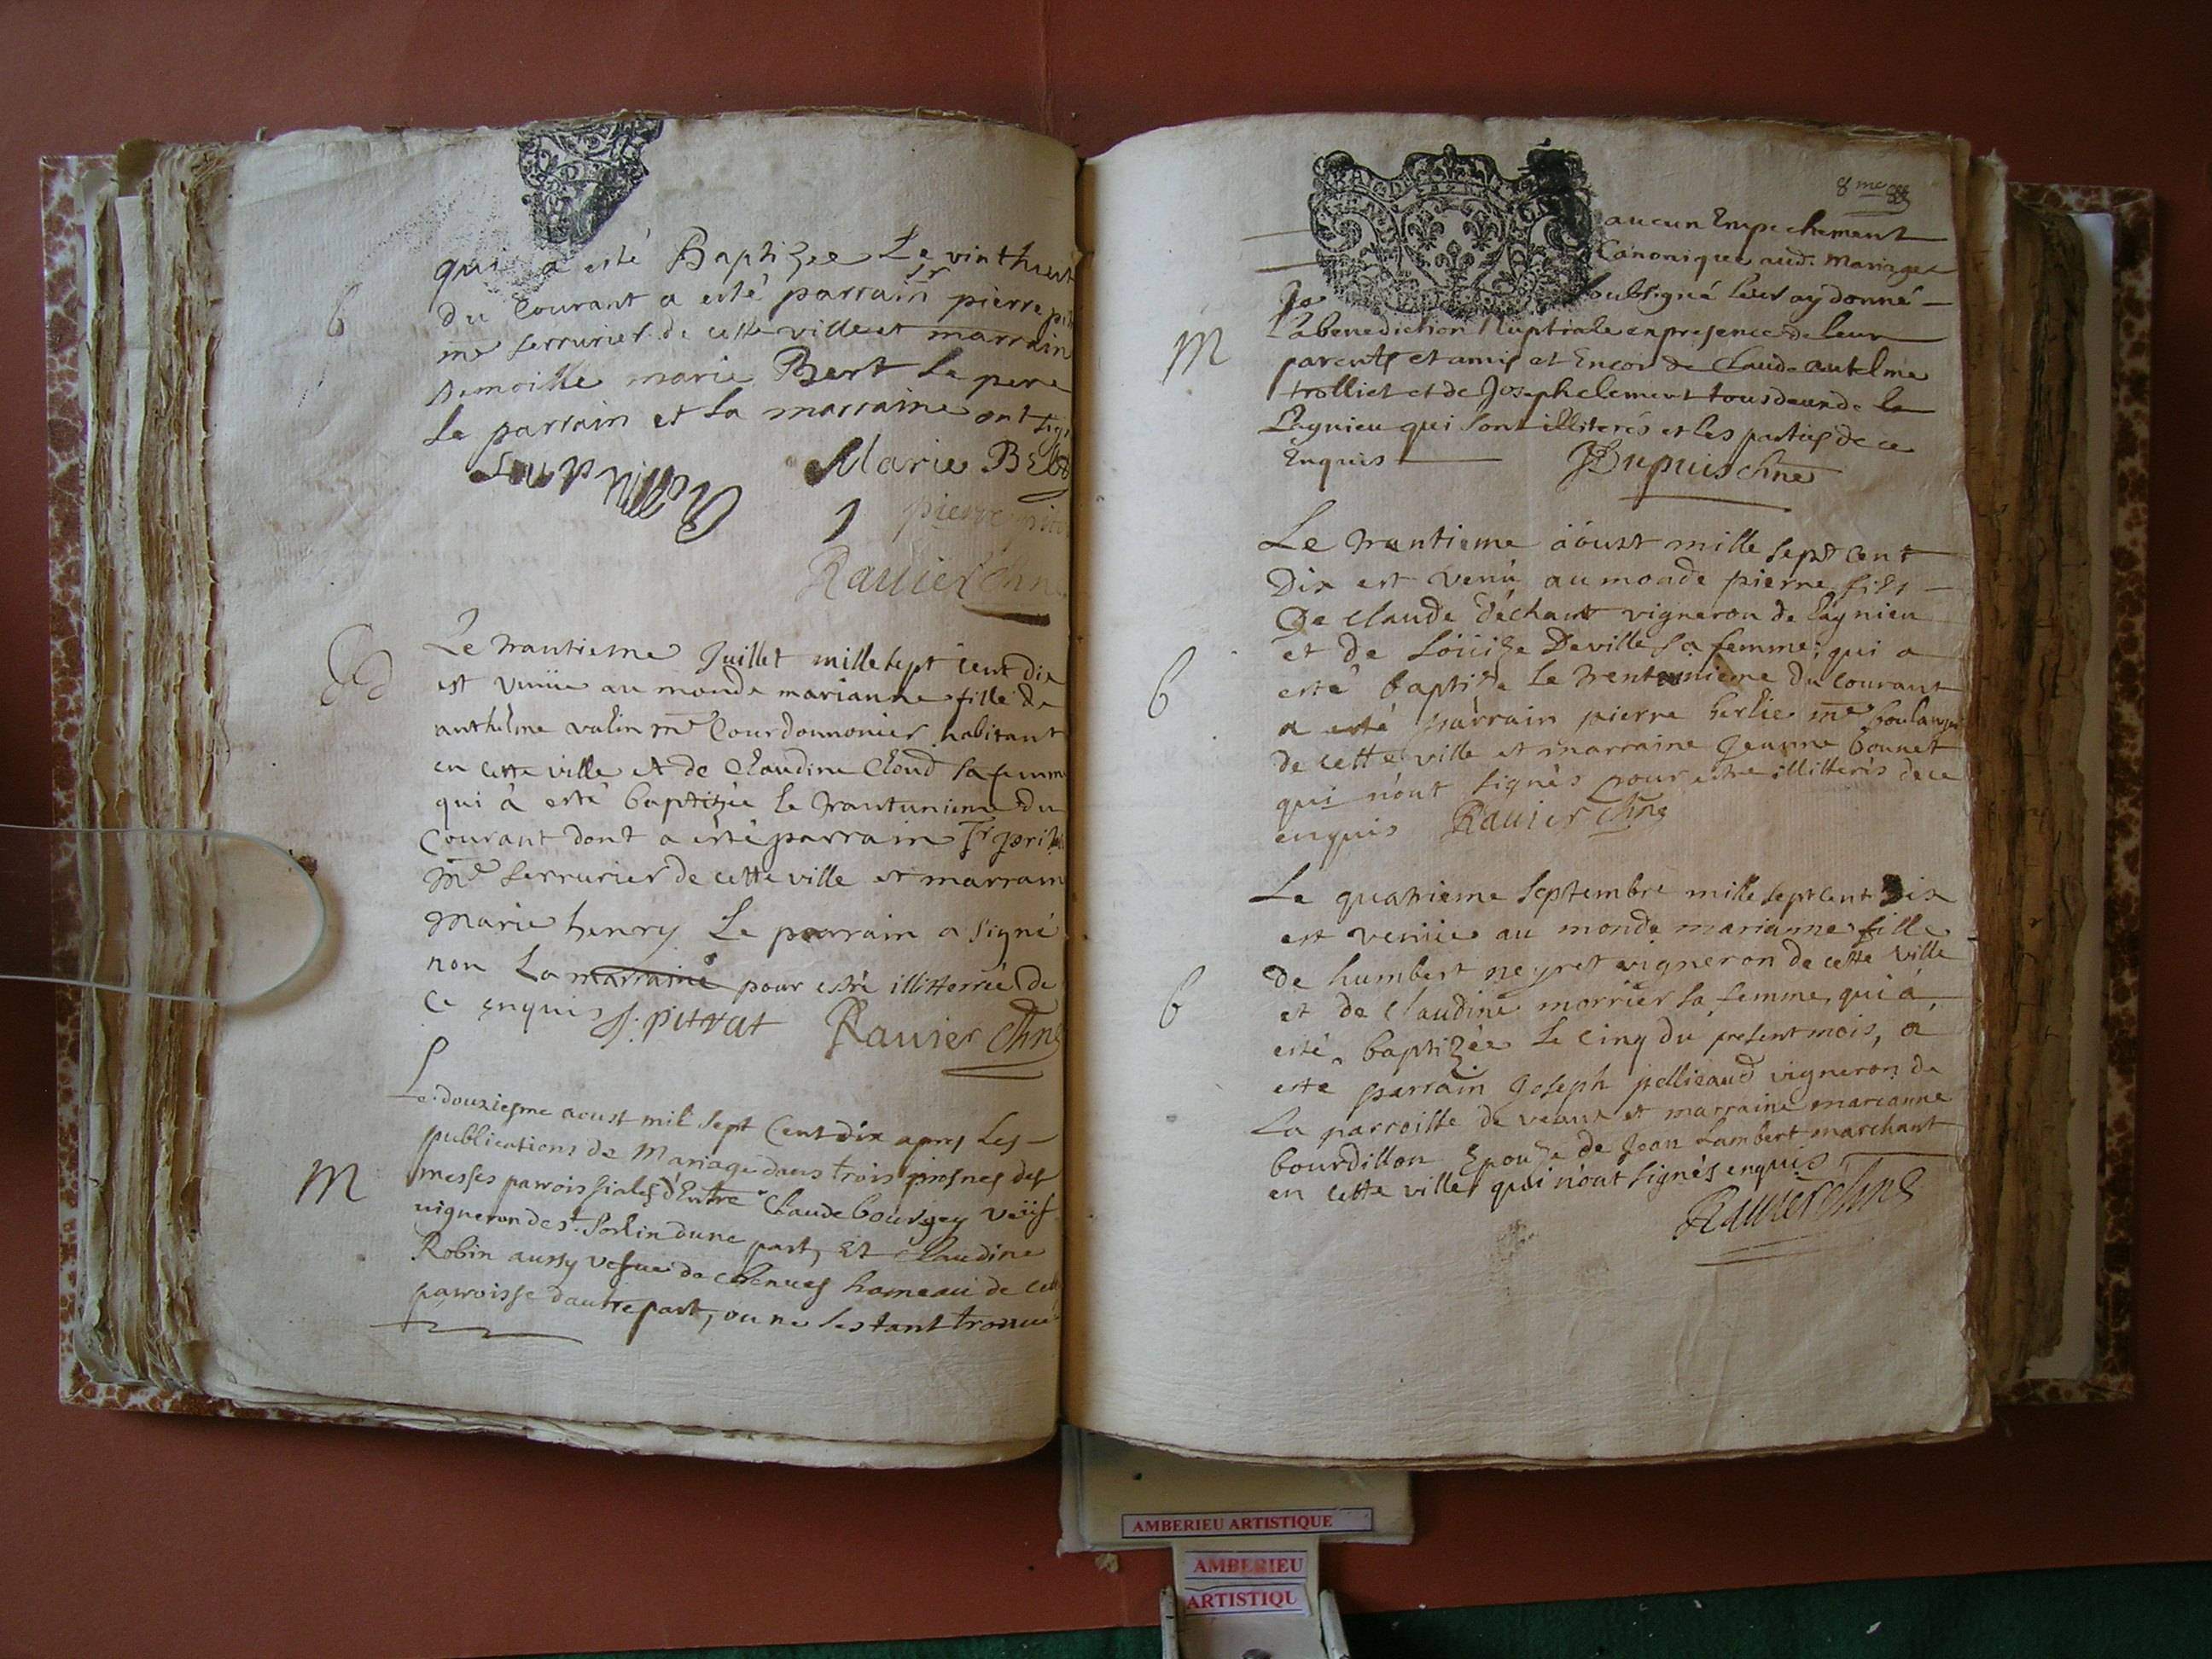 qui a esté Baptizee Le vinthuit
du Courant a esté parrain sr pierre
me serrurier de cette ville et marrain
Demoille marie Bert Le pere
Le parrain et La marraine ont
Marie
pierre
Ravier
b
Le trantieme Juillet mille sept cent dix
est venüe au monde marianne fille de
anthelme valin me Courdonnonier habitant
en cette ville et de Claudine Cloud sa femme
qui à esté baptizée le trantunieme du
Courant dont a esté parrain
Me serrurier de cette ville et marrain
Marie henry Le parrain a signé
non La marraine pour estre illitterrée de
Ce enquis Ravier
Le douziesme aoust mil sept Cent dix apres Les
publications de Mariage dans trois prosnes des
messes parroissiales d'Entre Claude bourgey veüf
M
vigneron de st. Sorlin dune part, Et Claudine
Robin aussy vefue de chenues hameau de
parroisse dautre part, ou ne sestant trouué
8me
aucun Empechement
Canonique aud. Mariage
Je soubsigné leur ay donné
La benediction Nuptiale en presence de leur
M
parents et amis et Encor de Claude antelme
trolliet et de Joseph clement tous deux de la
Lagnieu qui sont illiterés et les parties de ce
Enquis Dupuis
Le trantieme aoust mille sept cent
Dix est venu au monde pierre fils
De claude déchaut vigneron de lagnieu
et de Loüize Deville sa femme, qui a
b
esté baptizé Le trentunieme du courant
a esté parrain pierre herlie me boulanger
de cette ville et marraine Jeanne bonnet
qui n'ont signés pour estre illitterés de ce
enquis Ravier
Le quatrieme septembre mille sept cent Dix
est venüe au monde marianne fille
de humbert neyret vigneron de cette ville
b
et de Claudine morrier sa femme, qui à
esté baptizée Le cinq du present mois, a
esté parrain Joseph pellicaud vigneron de
La parroisse de vaux et marraine marianne
bourdillon Epouze de Jean Lambert marchant
en cette ville qui n'ont signés enquis
Ravier
AMBERIEU ARTISTIQUE
AMBERIEU
ARTISTIQU